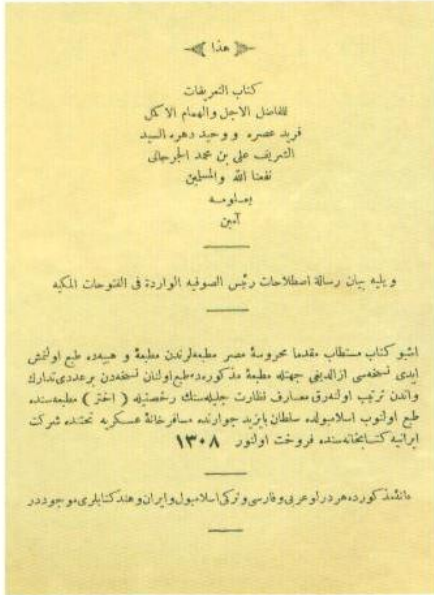 هذا
كتاب التعريفات
للفاضل الاجل والهمام الاكمل
فريد عصره ووحيد دهره السيد
الشريف على بن محمد الجرجانى
نفعنا الله والمسلمين
بعلومه
آمين
ويليه بيان رسالة اصطلاحات رئيس الصوفيه الواردة فى الفتوحات المكيه
اشبو كتاب مستطاب مقدما محروسۀ مصر مطبعه لرندن مطبعۀ وهبيه ده طبع اولنمش
ايدى نسخه سى ازالديغى جهتله مطبعۀ مذكوره ده طبع اولنان نسخه دن بر عددى تدارك
واندن ترتيب اولنه رق معارف نظارت جليله سنك رخصتيله ( اختر ) مطبعه سنده
طبع اولنوب اسلامبولده سلطان بايزيد جوارنده مسافرخانۀ عسكريه تحتنده شركت
ايرانيه كتابخانه سنده فروخت اولنور ١٣٠٨
خانۀ مذكورده هر درلو عربى وفارسى وتركى اسلامبول وايران وهند كتابلرى موجوددر